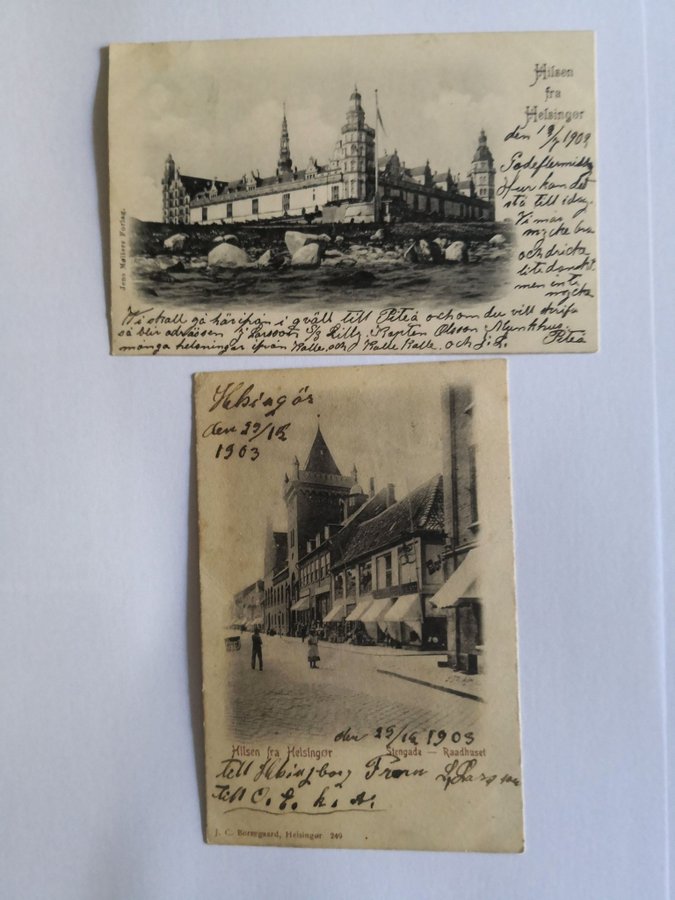 Hilsen
fra
Helsingør
den 18/7 1903
Godeftermidd
Hur kan det
stå till idag.
Vi mår
mycke bra
och dricka
litedanskt
men inte
mycke
Jens Møllers Forlag.
Vi skall gå härifrån i qväll till Piteå och om du vill skrifa
så blir adrässen J Larsson S/S Lilly. Kapten Olsson Munkhus.
många helsningar ifrån Kalle, och Kalle Kalle. och J. L. Piteå
Helsingör
den 29/12
1903
den 29/12 1903
Hilsen fra Helsingør Stengade — Raadhuset
till Helsingborg From L Larsson
till C. E. h. A.
J. C. Borregaard, Helsingør. 249